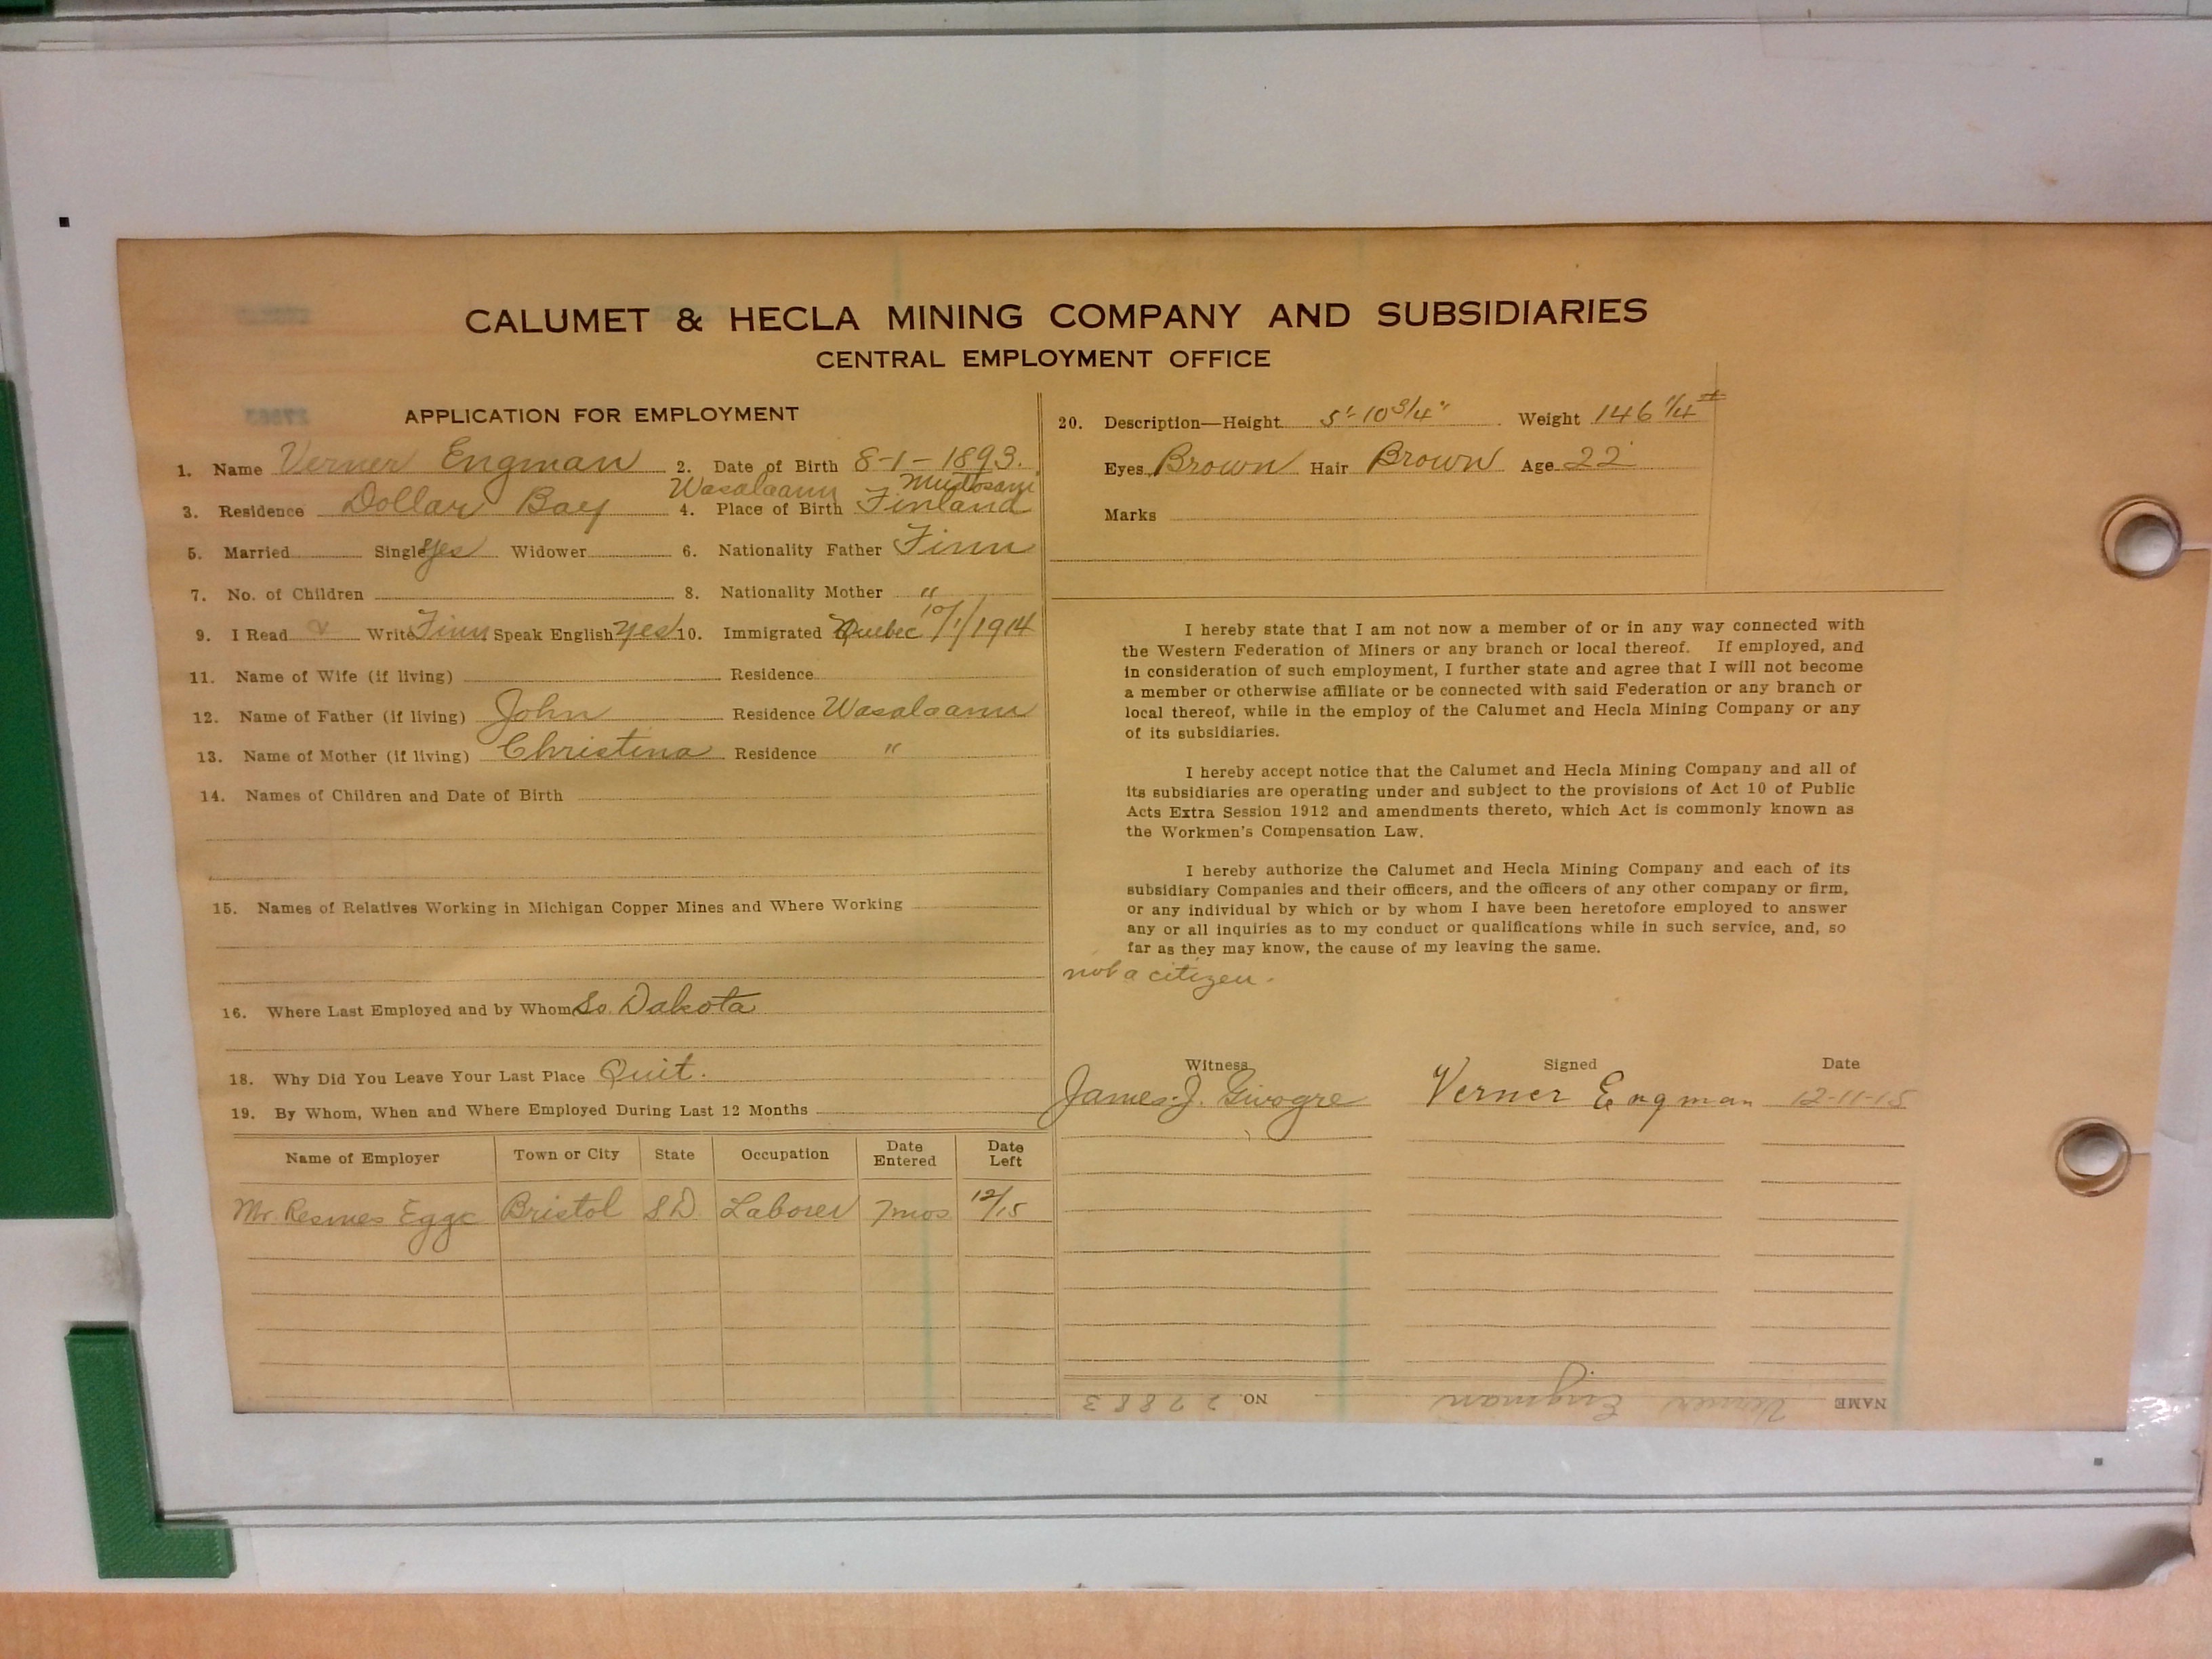 CALUMET & HECLA MINING COMPANY AND SUBSIDIARIES
CENTRAL EMPLOYMENT OFFICE
APPLICATION FOR EMPLOYMENT
1. Name Verner Engman 2. Date of Birth 8-1-1893.
Wasalaann
3. Residence Dollar Bay 4. Place of Birth Finland
5. Married Single yes Widower 6. Nationality Father Finn
7. No. of Children 8. Nationality Mother "
9. I Read Write Finn Speak English yes 10. Immigrated Quebec 10/1/1914
11. Name of Wife (if living) Residence
12. Name of Father (if living) John Residence Wasalaann
13. Name of Mother (if living) Christina Residence "
14. Names of Children and Date of Birth
15. Names of Relatives Working in Michigan Copper Mines and Where Working
16. Where Last Employed and by Whom So. Dakota
18. Why Did You Leave Your Last Place Quit.
19. By Whom, When and Where Employed During Last 12 Months
Name of Employer Town or City State Occupation Date Entered Date Left
Mr. Bristol S.D. Laborer 7mos 12/15
20. Description—Height 5'-10 3/4" Weight 146 1/4 #
Eyes Brown Hair Brown Age 22
Marks
I hereby state that I am not now a member of or in any way connected with
the Western Federation of Miners or any branch or local thereof. If employed, and
in consideration of such employment, I further state and agree that I will not become
a member or otherwise affiliate or be connected with said Federation or any branch or
local thereof, while in the employ of the Calumet and Hecla Mining Company or any
of its subsidiaries.
I hereby accept notice that the Calumet and Hecla Mining Company and all of
its subsidiaries are operating under and subject to the provisions of Act 10 of Public
Acts Extra Session 1912 and amendments thereto, which Act is commonly known as
the Workmen's Compensation Law.
I hereby authorize the Calumet and Hecla Mining Company and each of its
subsidiary Companies and their officers, and the officers of any other company or firm,
or any individual by which or by whom I have been heretofore employed to answer
any or all inquiries as to my conduct or qualifications while in such service, and, so
far as they may know, the cause of my leaving the same.
not a citizen.
Witness Signed Date
James J. Verner Engman 12-11-15
NAME Verner Engman NO. 27883